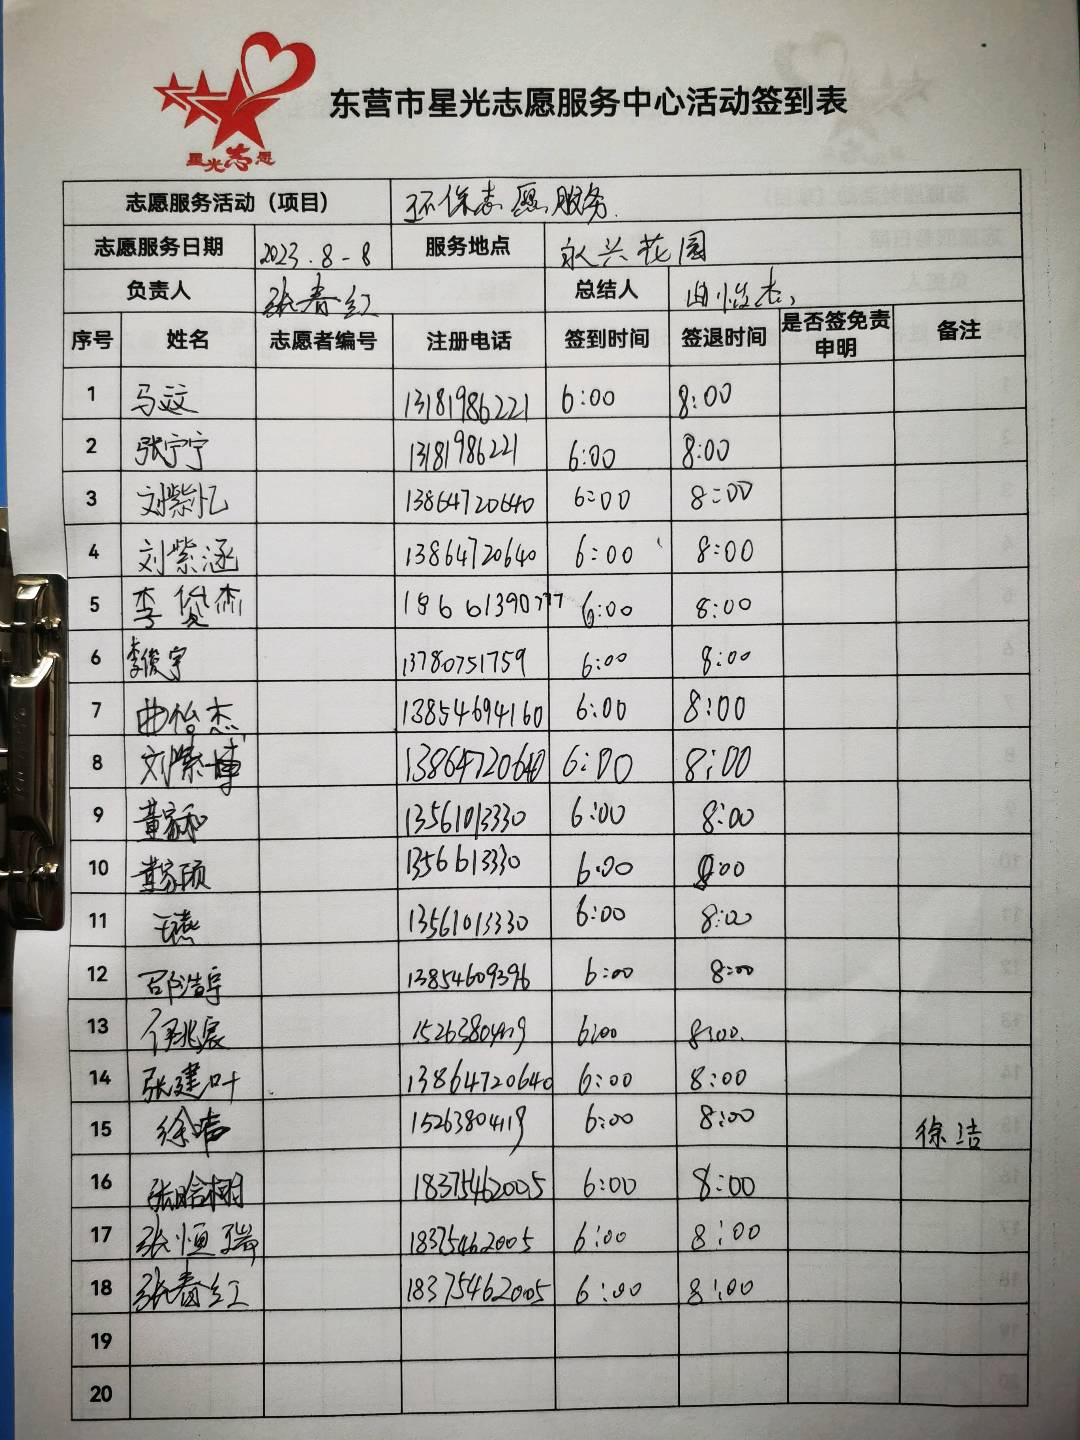 星光志愿
东营市星光志愿服务中心活动签到表
志愿服务活动（项目） 环保志愿服务.
志愿服务日期 2023.8-8 服务地点 永兴花园
负责人 张春红 总结人 曲怡杰
序号 姓名 志愿者编号 注册电话 签到时间 签退时间 是否签免责申明 备注
1 马 13181986221 6:00 8:00
2 张宁宁 13181986221 6:00 8:00
3 刘紫忆 13864720640 6:00 8:00
4 刘紫涵 13864720640 6:00 8:00
5 李俊杰 18661390777 6:00 8:00
6 李俊宇 13780751759 6:00 8:00
7 曲怡杰 13854694160 6:00 8:00
8 刘紫博 13864720640 6:00 8:00
9 黄家和 13561013330 6:00 8:00
10 黄家硕 1356613330 6:00 8:00
11 王 13561013330 6:00 8:00
12 邵浩宇 13854609396 6:00 8:00
13 15263804119 6:00 8:00.
14 张建叶 13864720640 6:00 8:00
15 徐 15263804119 6:00 8:00 徐洁
16 张晗栩 18375462005 6:00 8:00
17 张恒瑞 18375462005 6:00 8:00
18 张春红 18375462005 6:00 8:00
19
20